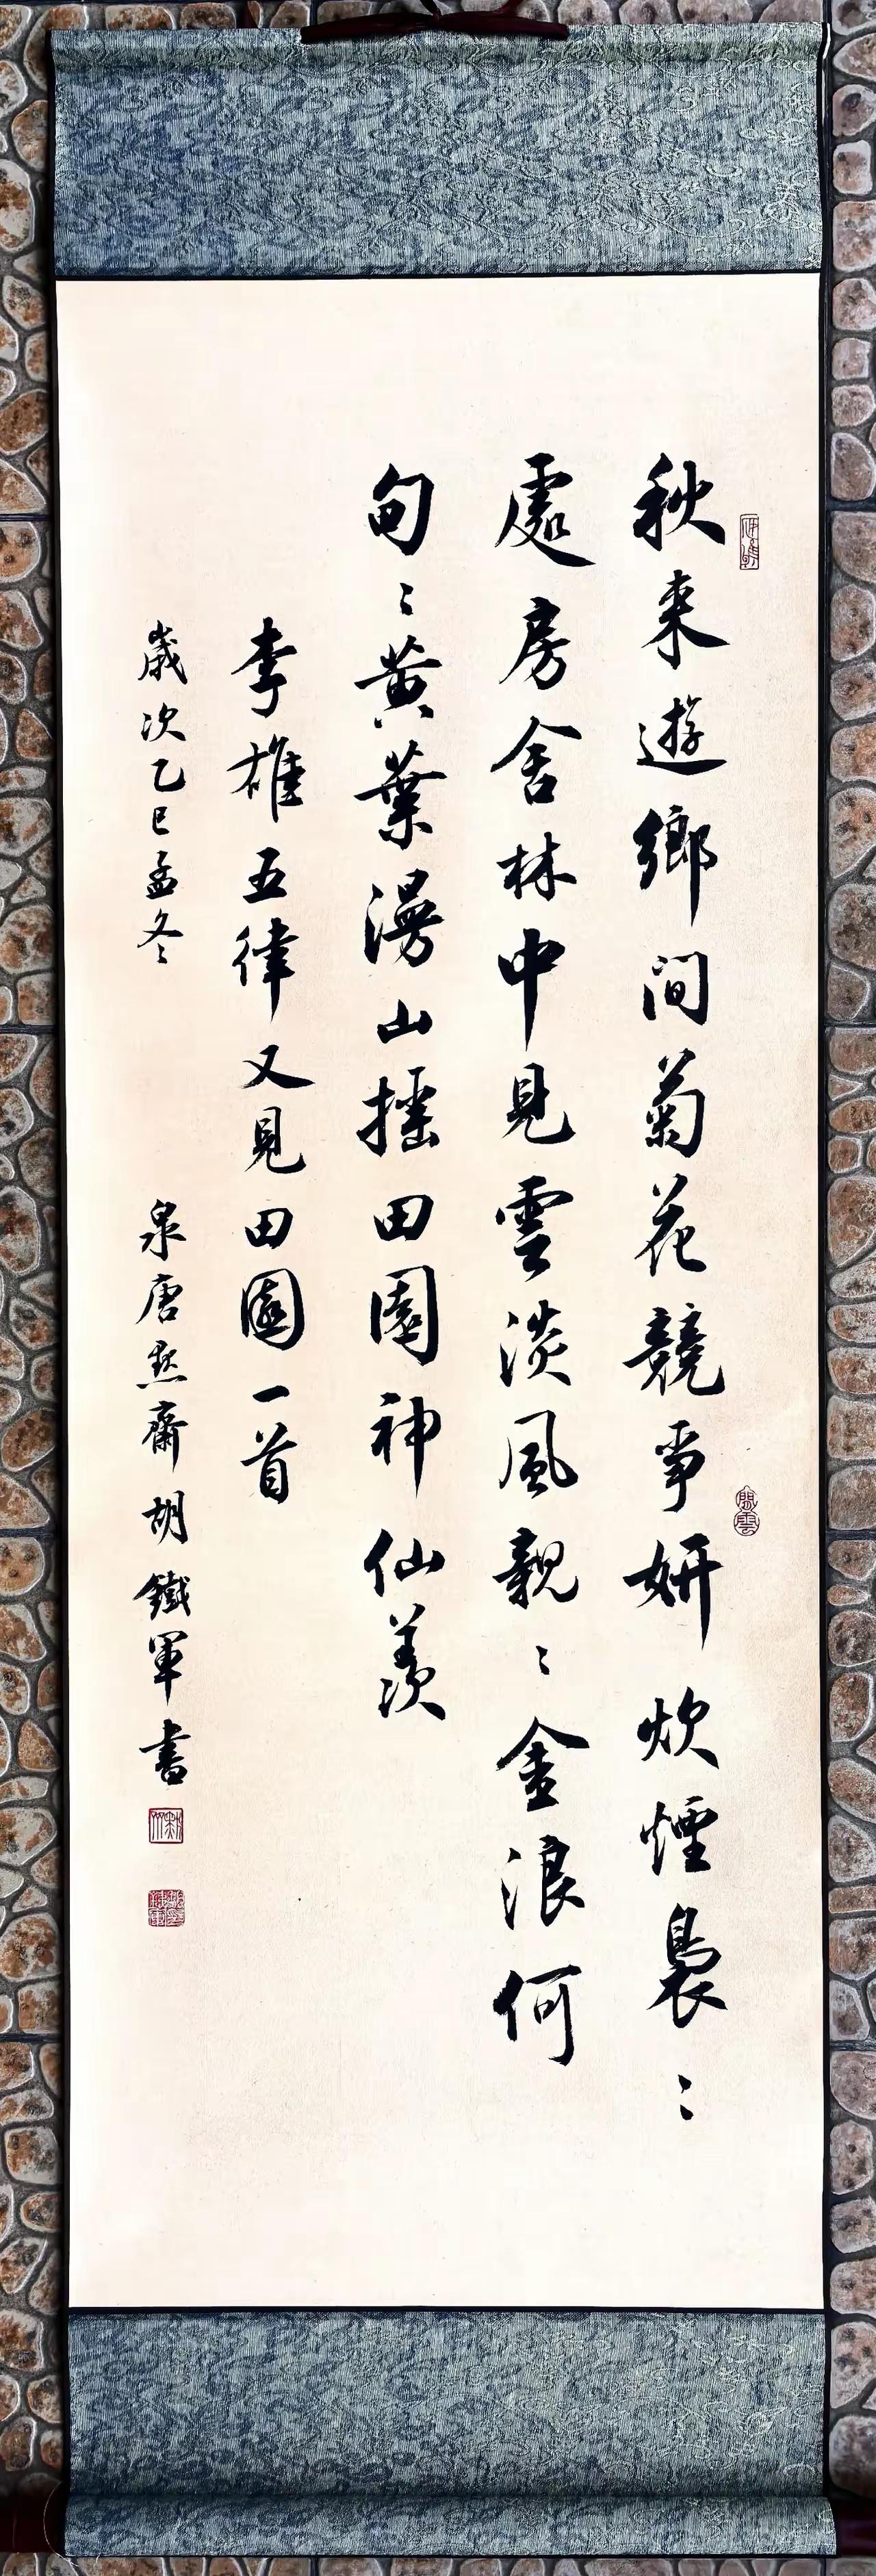 秋来遊鄉间菊花競争妍炊煙裊〻
處房舍林中見雲淡風親〻金浪何
甸〻黄葉漫山摇田園神仙羡
李雄五律又見田園一首
歲次乙巳孟冬 泉唐點齋胡鐵軍書